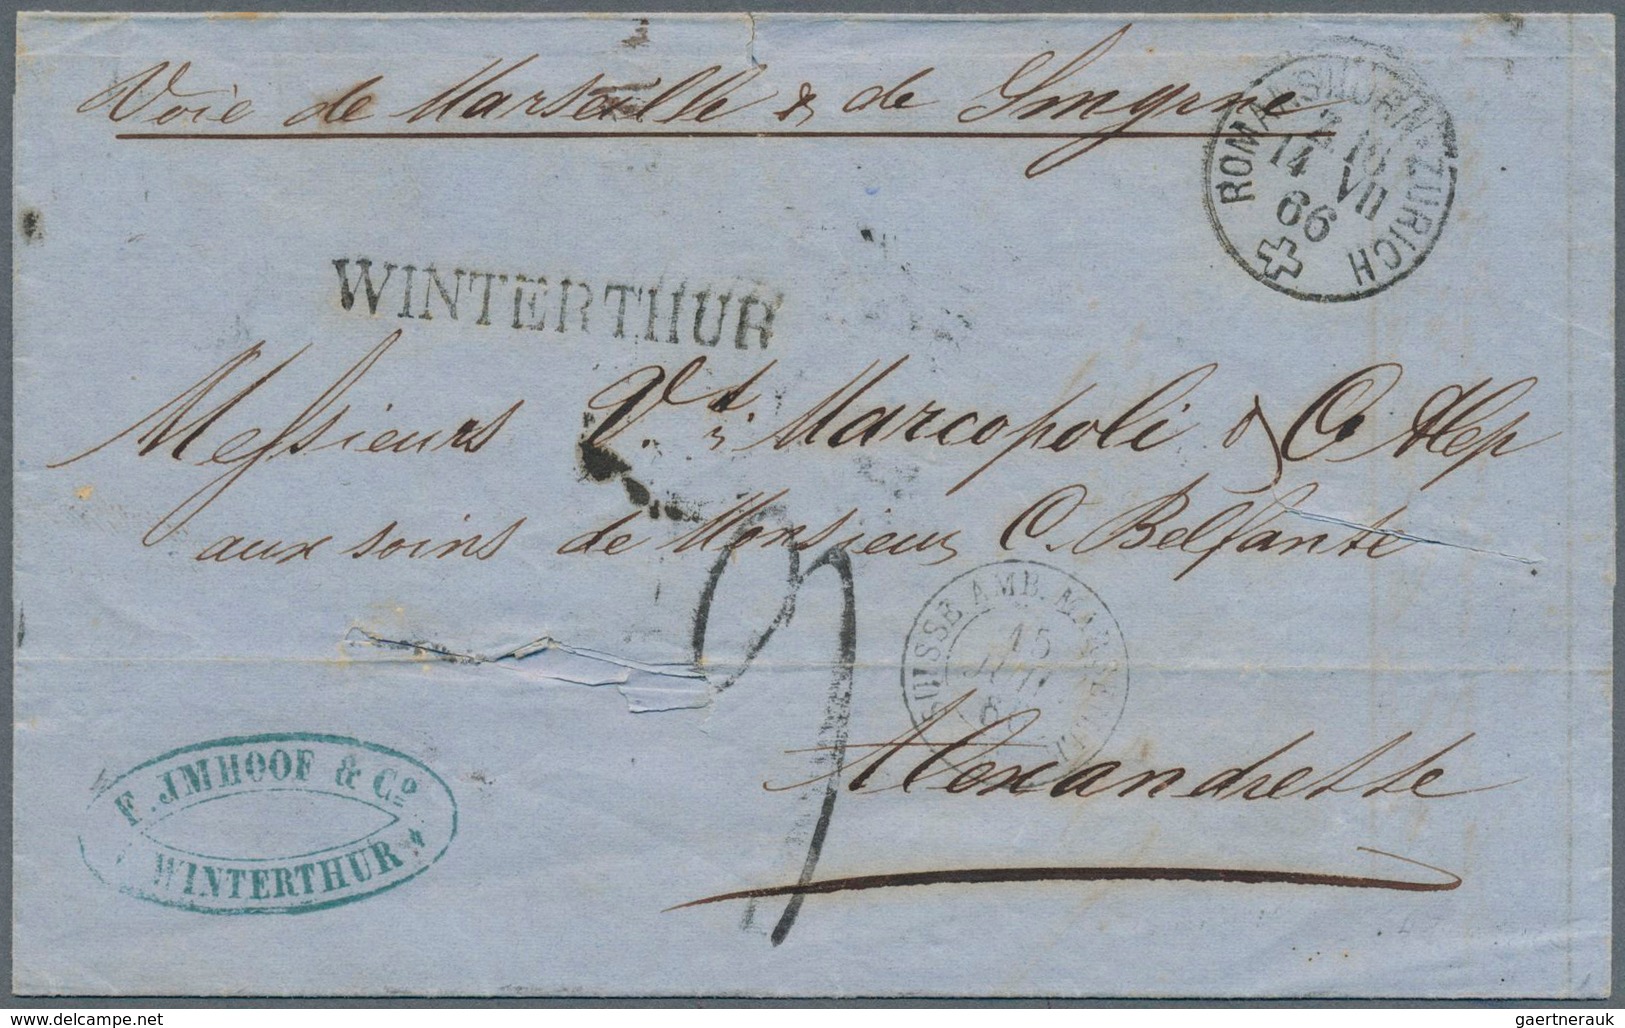 Voie de Marseille & de Smyrne
ROMANSHORN-ZÜRICH
14 VII
66
WINTERTHUR
Messieurs V.t Marcopoli & Co Alep
aux soins de Monsieur C. Belfante
SUISSE AMB. MARSEILLE
15
JUIL
9
Alexandrette
F. JMHOOF & Co.
WINTERTHUR
gaertnerauk